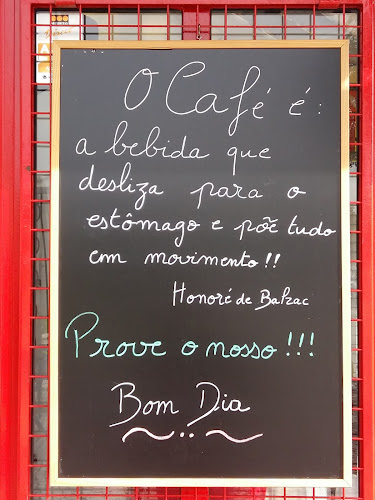 O Café é:
a bebida que
desliza para o
estômago e põe tudo
em movimento!!
Honoré de Balzac
Prove o nosso!!!
Bom Dia